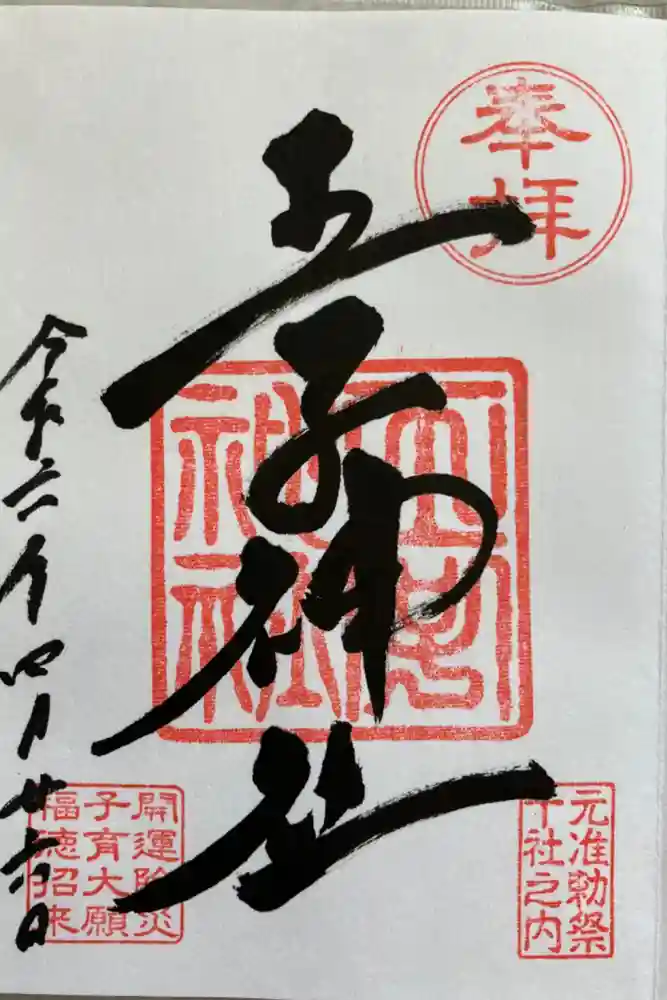 奉拝
王子神社
王子神社
元准勅祭
十社之内
開運除災
子育大願
福徳招来
令和六年四月廿六日